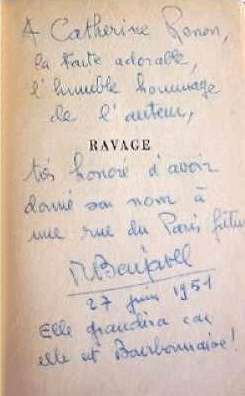 A Catherine Ronon,
la toute adorable,
l'humble hommage
de l'auteur,
RAVAGE
très honoré d'avoir
donné son nom à
une rue du Paris futur
Barjavel
27 juin 1951
Elle grandira car
elle est Bourbonnaise !